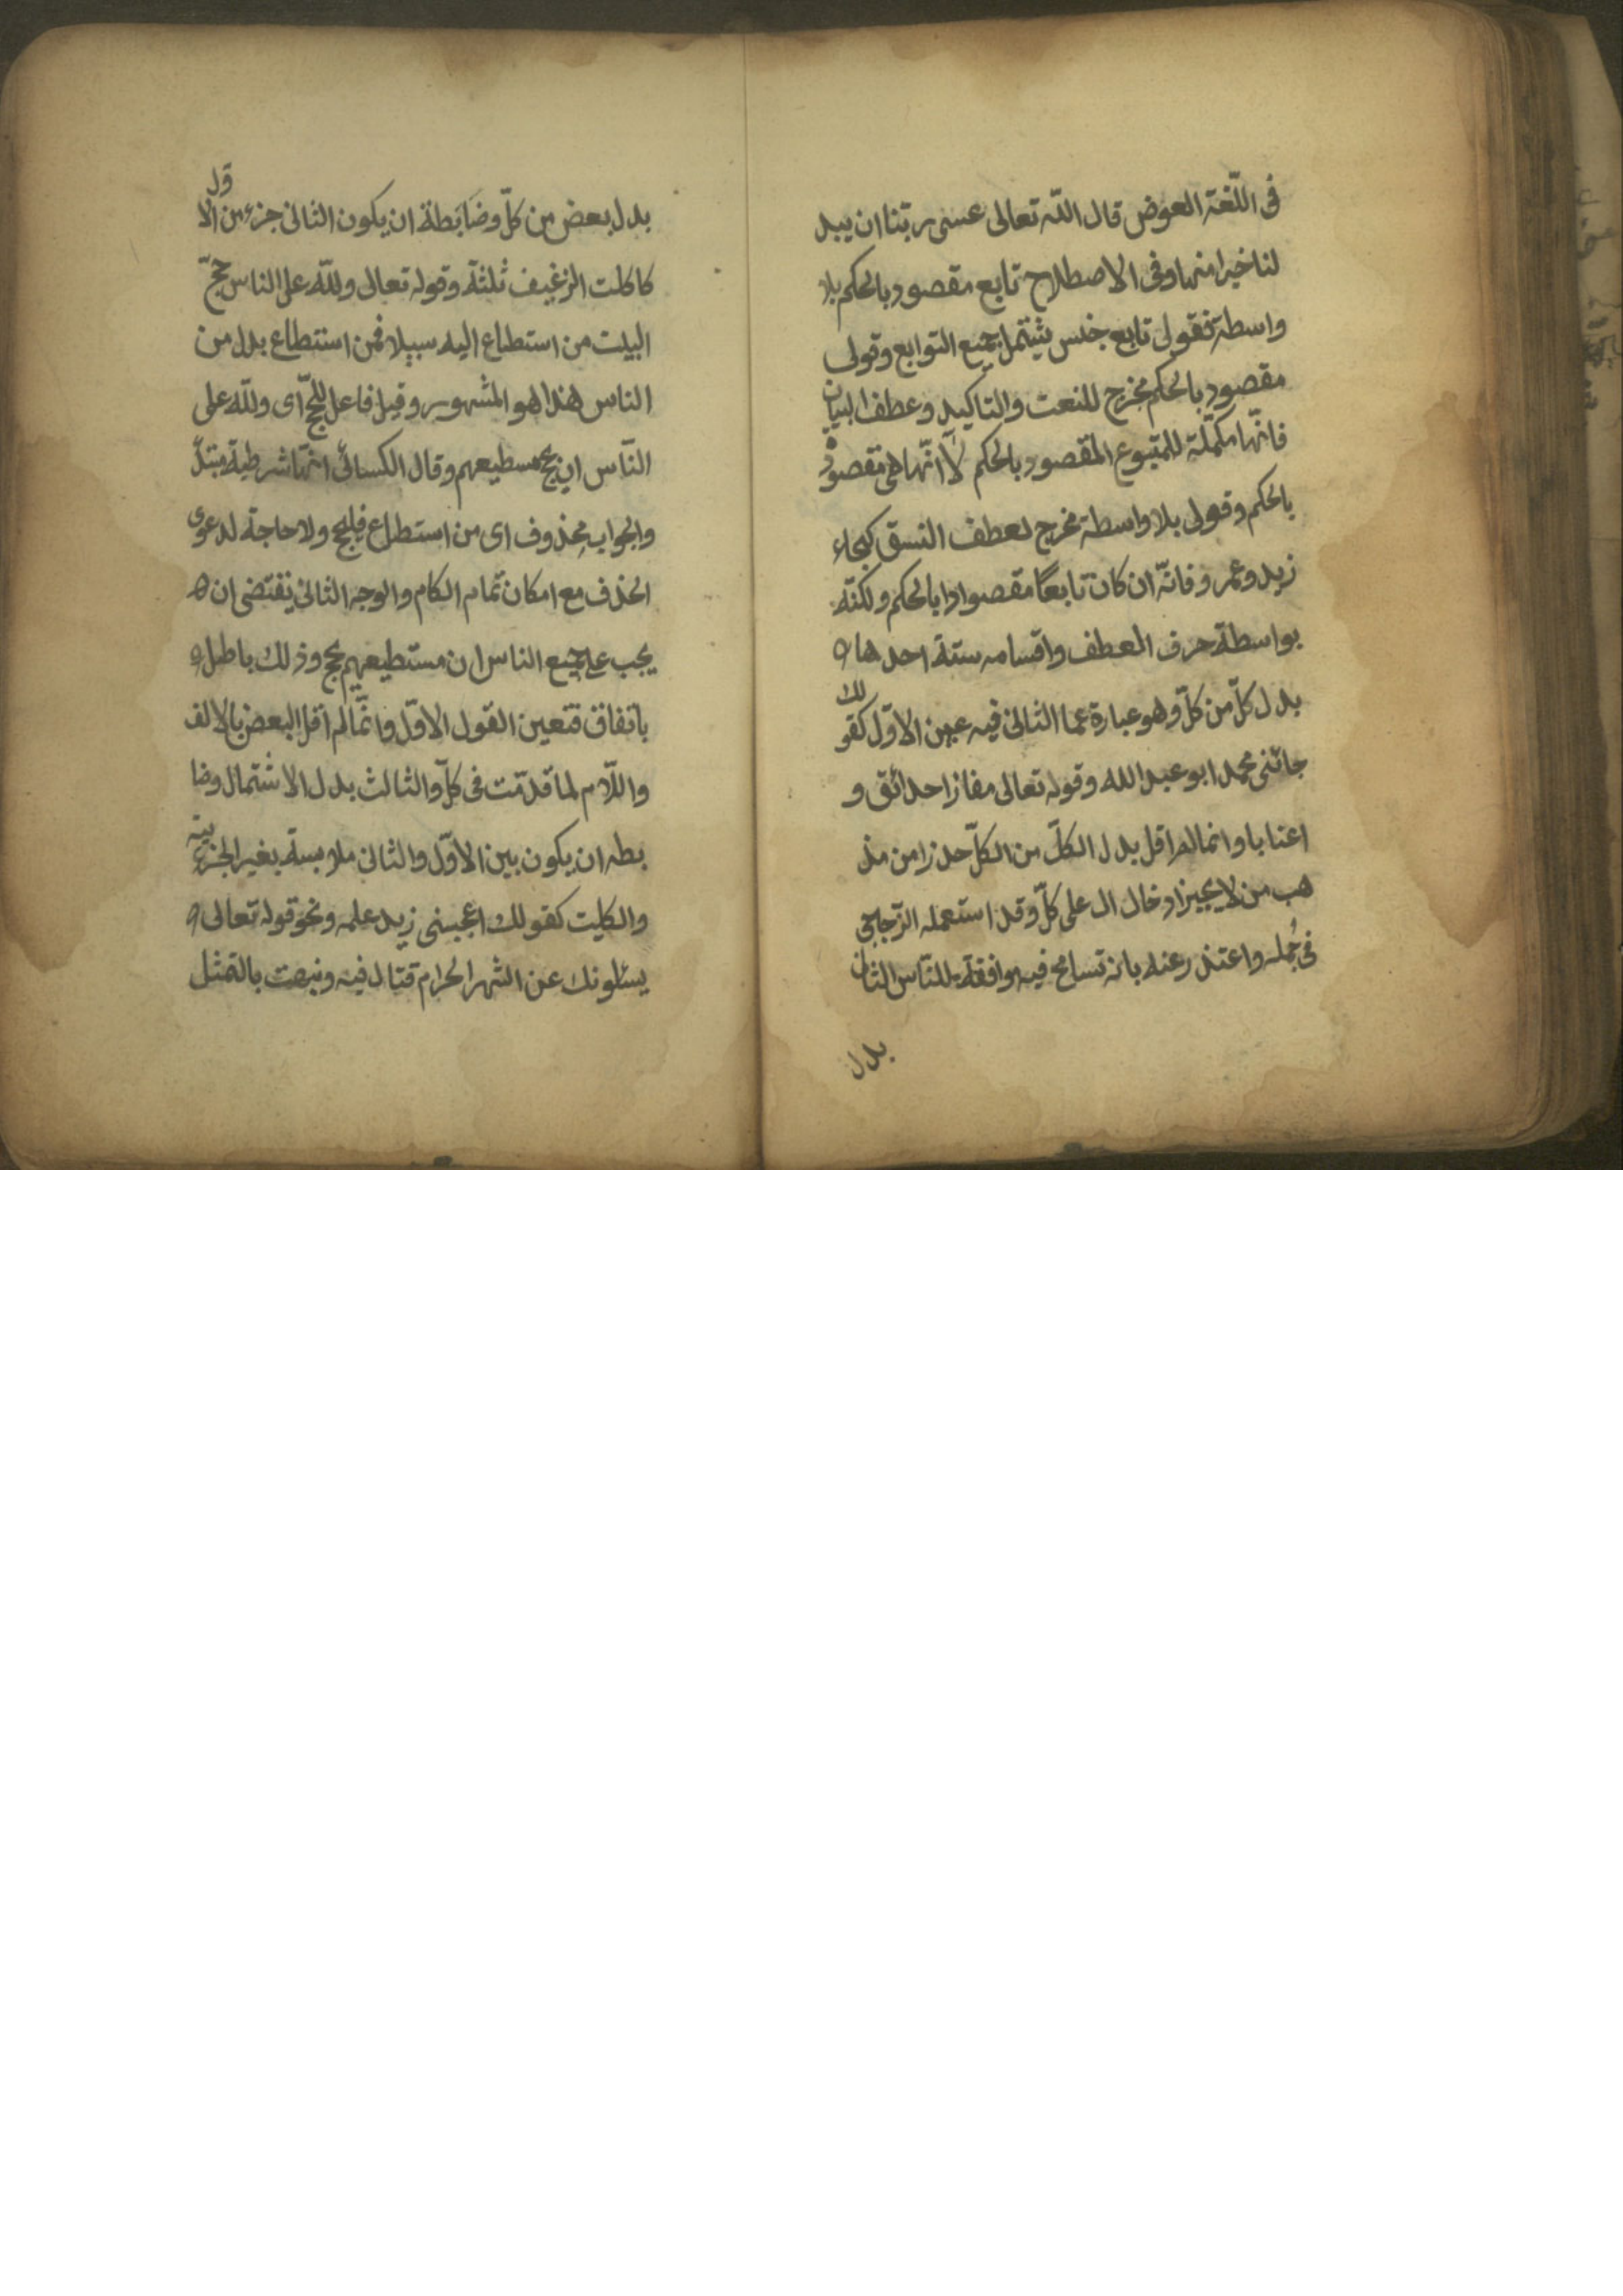 فى اللّغة العوض قال اللّه تعالى عسى ربّنا ان يبد
لنا خيرا منها وفى الاصطلاح تابع مقصود بالحكم بلا
واسطة فقولى تابع جنس يشتمل جميع التوابع وقولى
مقصود بالحكم مخرج للنعت والتاكيد وعطف البيان
فانّها مكمّلة للمتبوع المقصود بالحكم لا انّها هى مقصودة
بالحكم وقولى بلا واسطة مخرج لعطف النسق كجاء
زيد وعمرو فانّه ان كان تابعًا مقصوادا بالحكم ولكنّه
بواسطة حرف العطف واقسامه ستة احدها
بدل كلّ من كلّ وهو عبارة عما الثانى فيه عين الاوّل كقولك
جائنى محمد ابو عبد الله وقوله تعالى مفازا حدائق و
اعنابا وانما لم اقل بدل الكلّ من الكلّ حذرا من مذ
هب من لا يجيز ادخال ال على كلّ وقد استعمله الزّجاجى
فى جُمله واعتذر عنه بانه تسامح فيه موافقة للنّاس الثانى
بدل
بدل بعض من كلّ وضَابَطة ان يكون الثانى جزء من الاول
كاكلت الرغيف ثلثة وقوله تعالى وللّه على الناس حجّ
البيت من استطاع اليه سبيلا فمن استطاع بدل من
الناس هذا هو المشهور وقيل فاعل للحجّ اى وللّه على
النّاس ان يحج مسطيعهم وقال الكسائى انهّا شرطية مبتدأ
والجواب محذوف اى من استطاع فليحج ولا حاجة لدعوى
الحذف مع امكان تمام الكام والوجه الثانى يقتضى ان
يجب على جميع الناس ان مستطيعهم يحج وذلك باطل
باتفاق فتعين القول الاوّل وانّما لم اقل البعض بالالف
واللّام لما قدّمت فى كلّ والثالث بدل الاشتمال وضا
بطه ان يكون بين الاوّل والثانى ملابسة بغير الجزئية
والكليت كقولك اعجبنى زيد علمه ونحو قوله تعالى
يسئلونك عن الشهر الحرام قتال فيه ونبهت بالتمثل